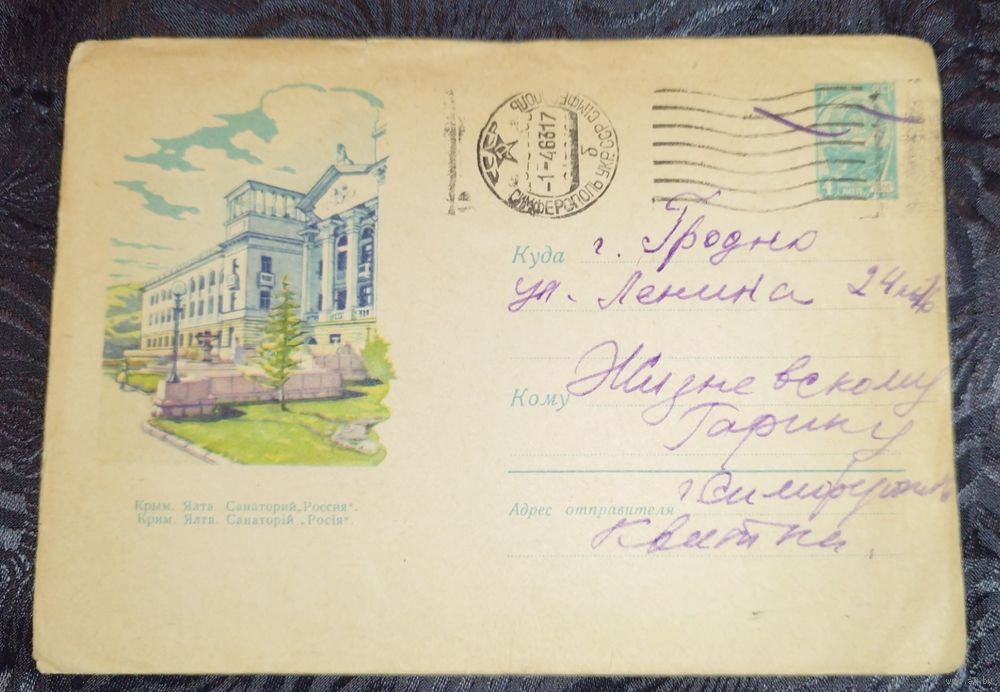 СИМФЕРОПОЛЬ
УКР ССР СИМФЕРОПОЛЬ
СССР
-1-46317
4
КОП
Куда г. Гродно
ул. Ленина 24
Кому Жизневскому
Гарику
Адрес отправителя г. Симферополь
Квитки
Крым. Ялта. Санаторий „Россия“.
Крим. Ялта. Санаторій „Росія“.